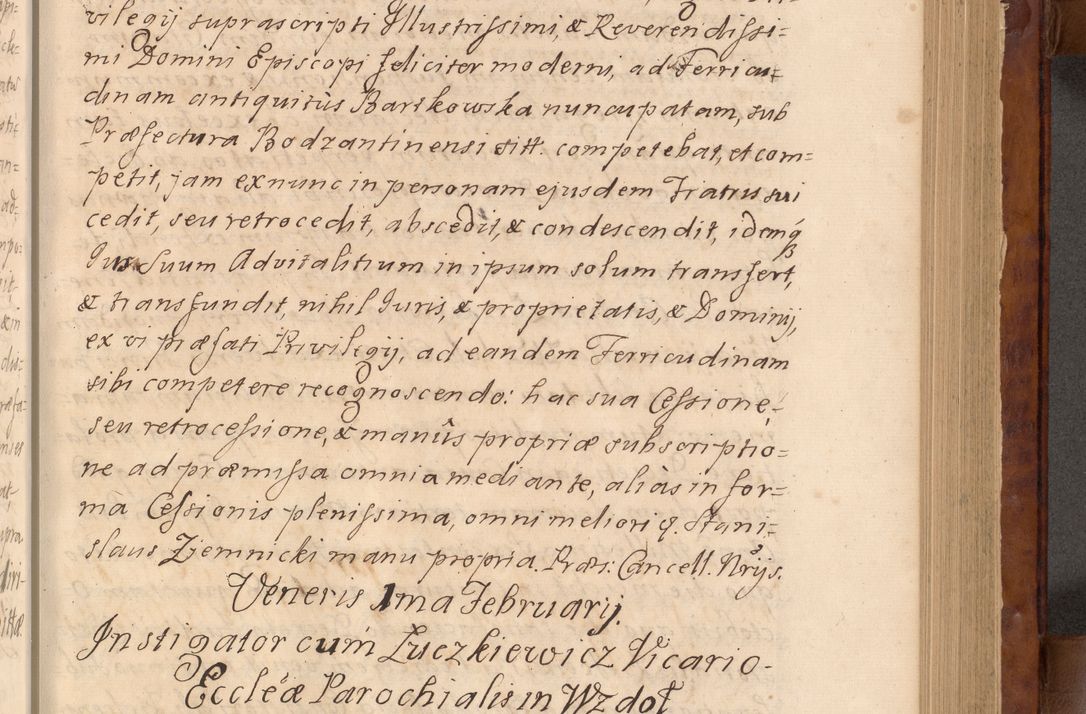 vilegij suprascripti Illustrissimi, & Reverendissi=
mi Domini Episcopi feliciter moderni, ad Ferricu=
dinam antiquitùs Bartkowska nuncupatam, sub
Præfectura Bodzantinensi sitt. competebat, et com=
petit, jam exnunc in personam ejusdem Fratrus sui
cedit, seu retrocedit, abscedit, & condescendit, idemq́
Jus Suum Advitalitium in ipsum solum transfert,
& transfundit, nihil Juris, & proprietatis, & Dominij,
ex vi præfati Privilegij, ad eandem Ferricudinam
sibi competere recognoscendo: hac sua Cessione,
seu retrocessione, & manûs propriæ subscriptio=
ne ad præmissa omnia mediante, aliàs in for=
mà Cessionis plenissima, omni meliori q. Stani=
slaus Ziemnicki manu propria. Præs: Cancell. Nrijs.
Veneris 1ma Februarij.
Instigator cum Łuczkiewicz Vicario
Eccléæ Parochialis in Wzdoł